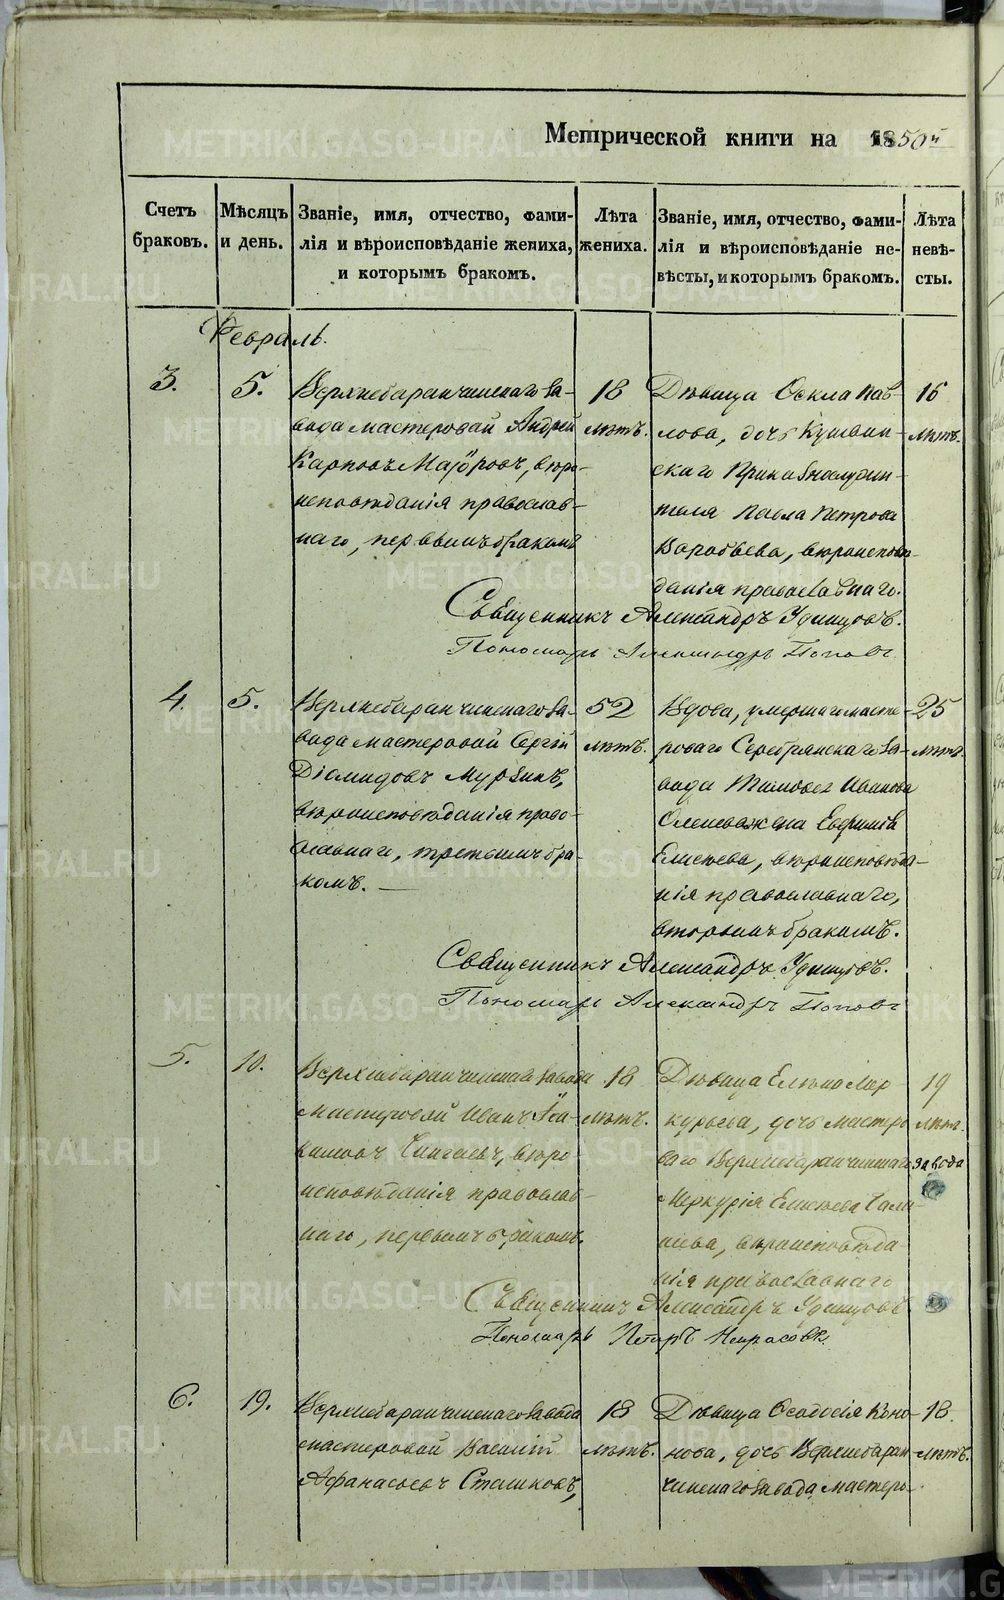 Метрической книги на 1850й
Счетъ браковъ.
Мѣсяцъ и день.
Званіе, имя, отчество, фами-
лія и вѣроисповѣданіе жениха,
и которымъ бракомъ.
Лѣта жениха.
Званіе, имя, отчество, фами-
лія и вѣроисповѣданіе не-
вѣсты, и которымъ бракомъ.
Лѣта невѣ-
сты.
Февраль.
3. 5.
Верхнебаранчинскаго за-
вода мастеровой Андрей
Карповъ Маіоровъ, вѣро-
исповѣданія православ-
наго, первымъ бракомъ
18
лѣтъ.
Дѣвица Ѳекла Пав-
лова, дочь Кушвин-
скаго
Павла Петрова
Воробьева, вѣроисповѣ-
данія православнаго.
16
лѣтъ.
Священникъ Александръ Удинцовъ.
Пономарь Александръ Поповъ
4. 5.
Верхнебаранчинскаго за-
вода мастеровой Сергій
Діомидовъ Мурзинъ,
вѣроисповѣданія право-
славнаго, третьимъ бра-
комъ.
52
лѣтъ.
Вдова, умершаго масте-
роваго Серебрянскаго за-
вода Тимофея Иванова
жена Евфимія
Елисѣева, вѣроисповѣда-
нія православнаго,
вторымъ бракомъ.
25
лѣтъ.
Священникъ Александръ Удинцовъ.
Пономарь Александръ Поповъ
5. 10.
Верхнебаранчинскаго завода
мастеровой Иванъ Іоа-
кимовъ вѣро
исповѣданія православ-
наго, первымъ бракомъ.
18
лѣтъ.
Дѣвица Елена Мер-
курьева, дочь мастеро
ваго Верхнебаранчинскаго завода
Меркурія Елисѣева
вѣроисповѣда
нія православнаго
19
лѣтъ.
Священникъ Александръ Удинцовъ
Пономарь Петръ Некрасовъ
6. 19.
Верхнебаранчинскаго завода
мастеровой Василій
Афанасьевъ Сташковъ,
18
лѣтъ.
Дѣвица Ѳеодосія Коно-
нова, дочь Верхнебаран-
чинскаго завода мастеро-
18.
лѣтъ.
METRIKI.GASO-URAL.RU